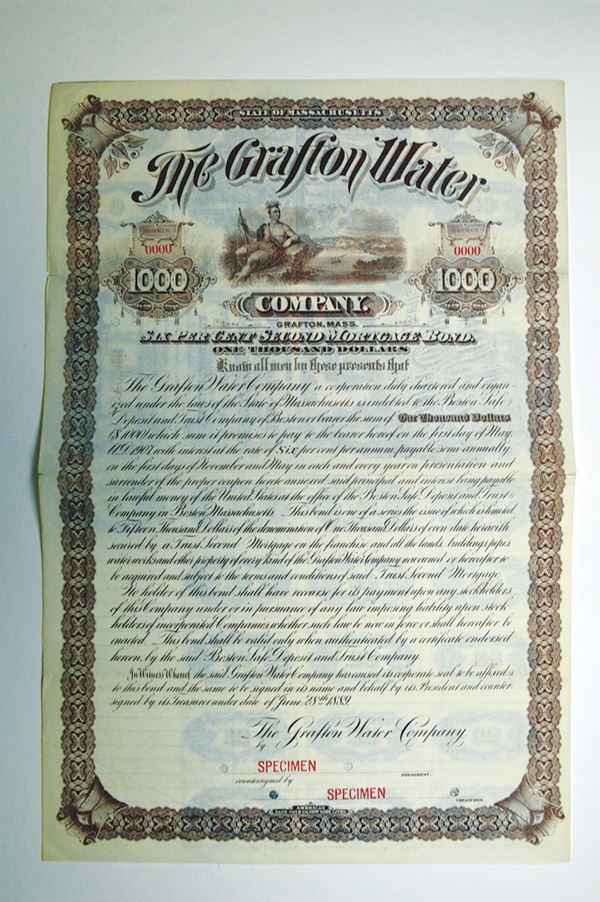 STATE OF MASSACHUSETTS
The Grafton Water
NUMBER NUMBER
0000 0000
1000 1000
COMPANY,
GRAFTON, MASS.
SIX PER CENT SECOND MORTGAGE BOND.
ONE THOUSAND DOLLARS
Know all men by these presents that
The Grafton Water Company a corporation duly chartered and organ-
ized under the laws of the State of Massachusetts is indebted to the Boston Safe
Deposit and Trust Company of Boston or bearer the sum of One Thousand Dollars
($1000) which sum it promises to pay to the bearer hereof on the first day of May,
1907 with interest at the rate of Six per cent per annum, payable semi-annually
on the first days of November and May in each and every year on presentation and
surrender of the proper coupon hereto annexed said principal and interest being payable
in lawful money of the United States at the office of the Boston Safe Deposit and Trust
Company in Boston Massachusetts. This bond is one of a series the issue of which is limited
to Fifteen Thousand Dollars of the denomination of One Thousand Dollars of even date herewith
secured by a Trust Second Mortgage on the franchise and all the lands, buildings, pipes,
water works and other property of every kind of the Grafton Water Company now owned or hereafter to
be acquired and subject to the terms and conditions of said Trust Second Mortgage
No holder of this bond shall have recourse for its payment upon any stockholders
of this Company under or in pursuance of any law imposing liability upon stock-
holders of incorporated Companies whether such law be now in force or shall hereafter be
enacted. This bond shall be valid only when authenticated by a certificate endorsed
hereon, by the said Boston Safe Deposit and Trust Company.
In Witness Whereof the said Grafton Water Company has caused its corporate seal to be affixed
to this bond and the same to be signed in its name and behalf by its President and counter-
signed by its Treasurer under date of June 28th 1889.
The Grafton Water Company,
by
SPECIMEN PRESIDENT.
countersigned by
SPECIMEN TREASURER.
AMERICAN
BANK NOTE CO. NEW YORK. LITHO.